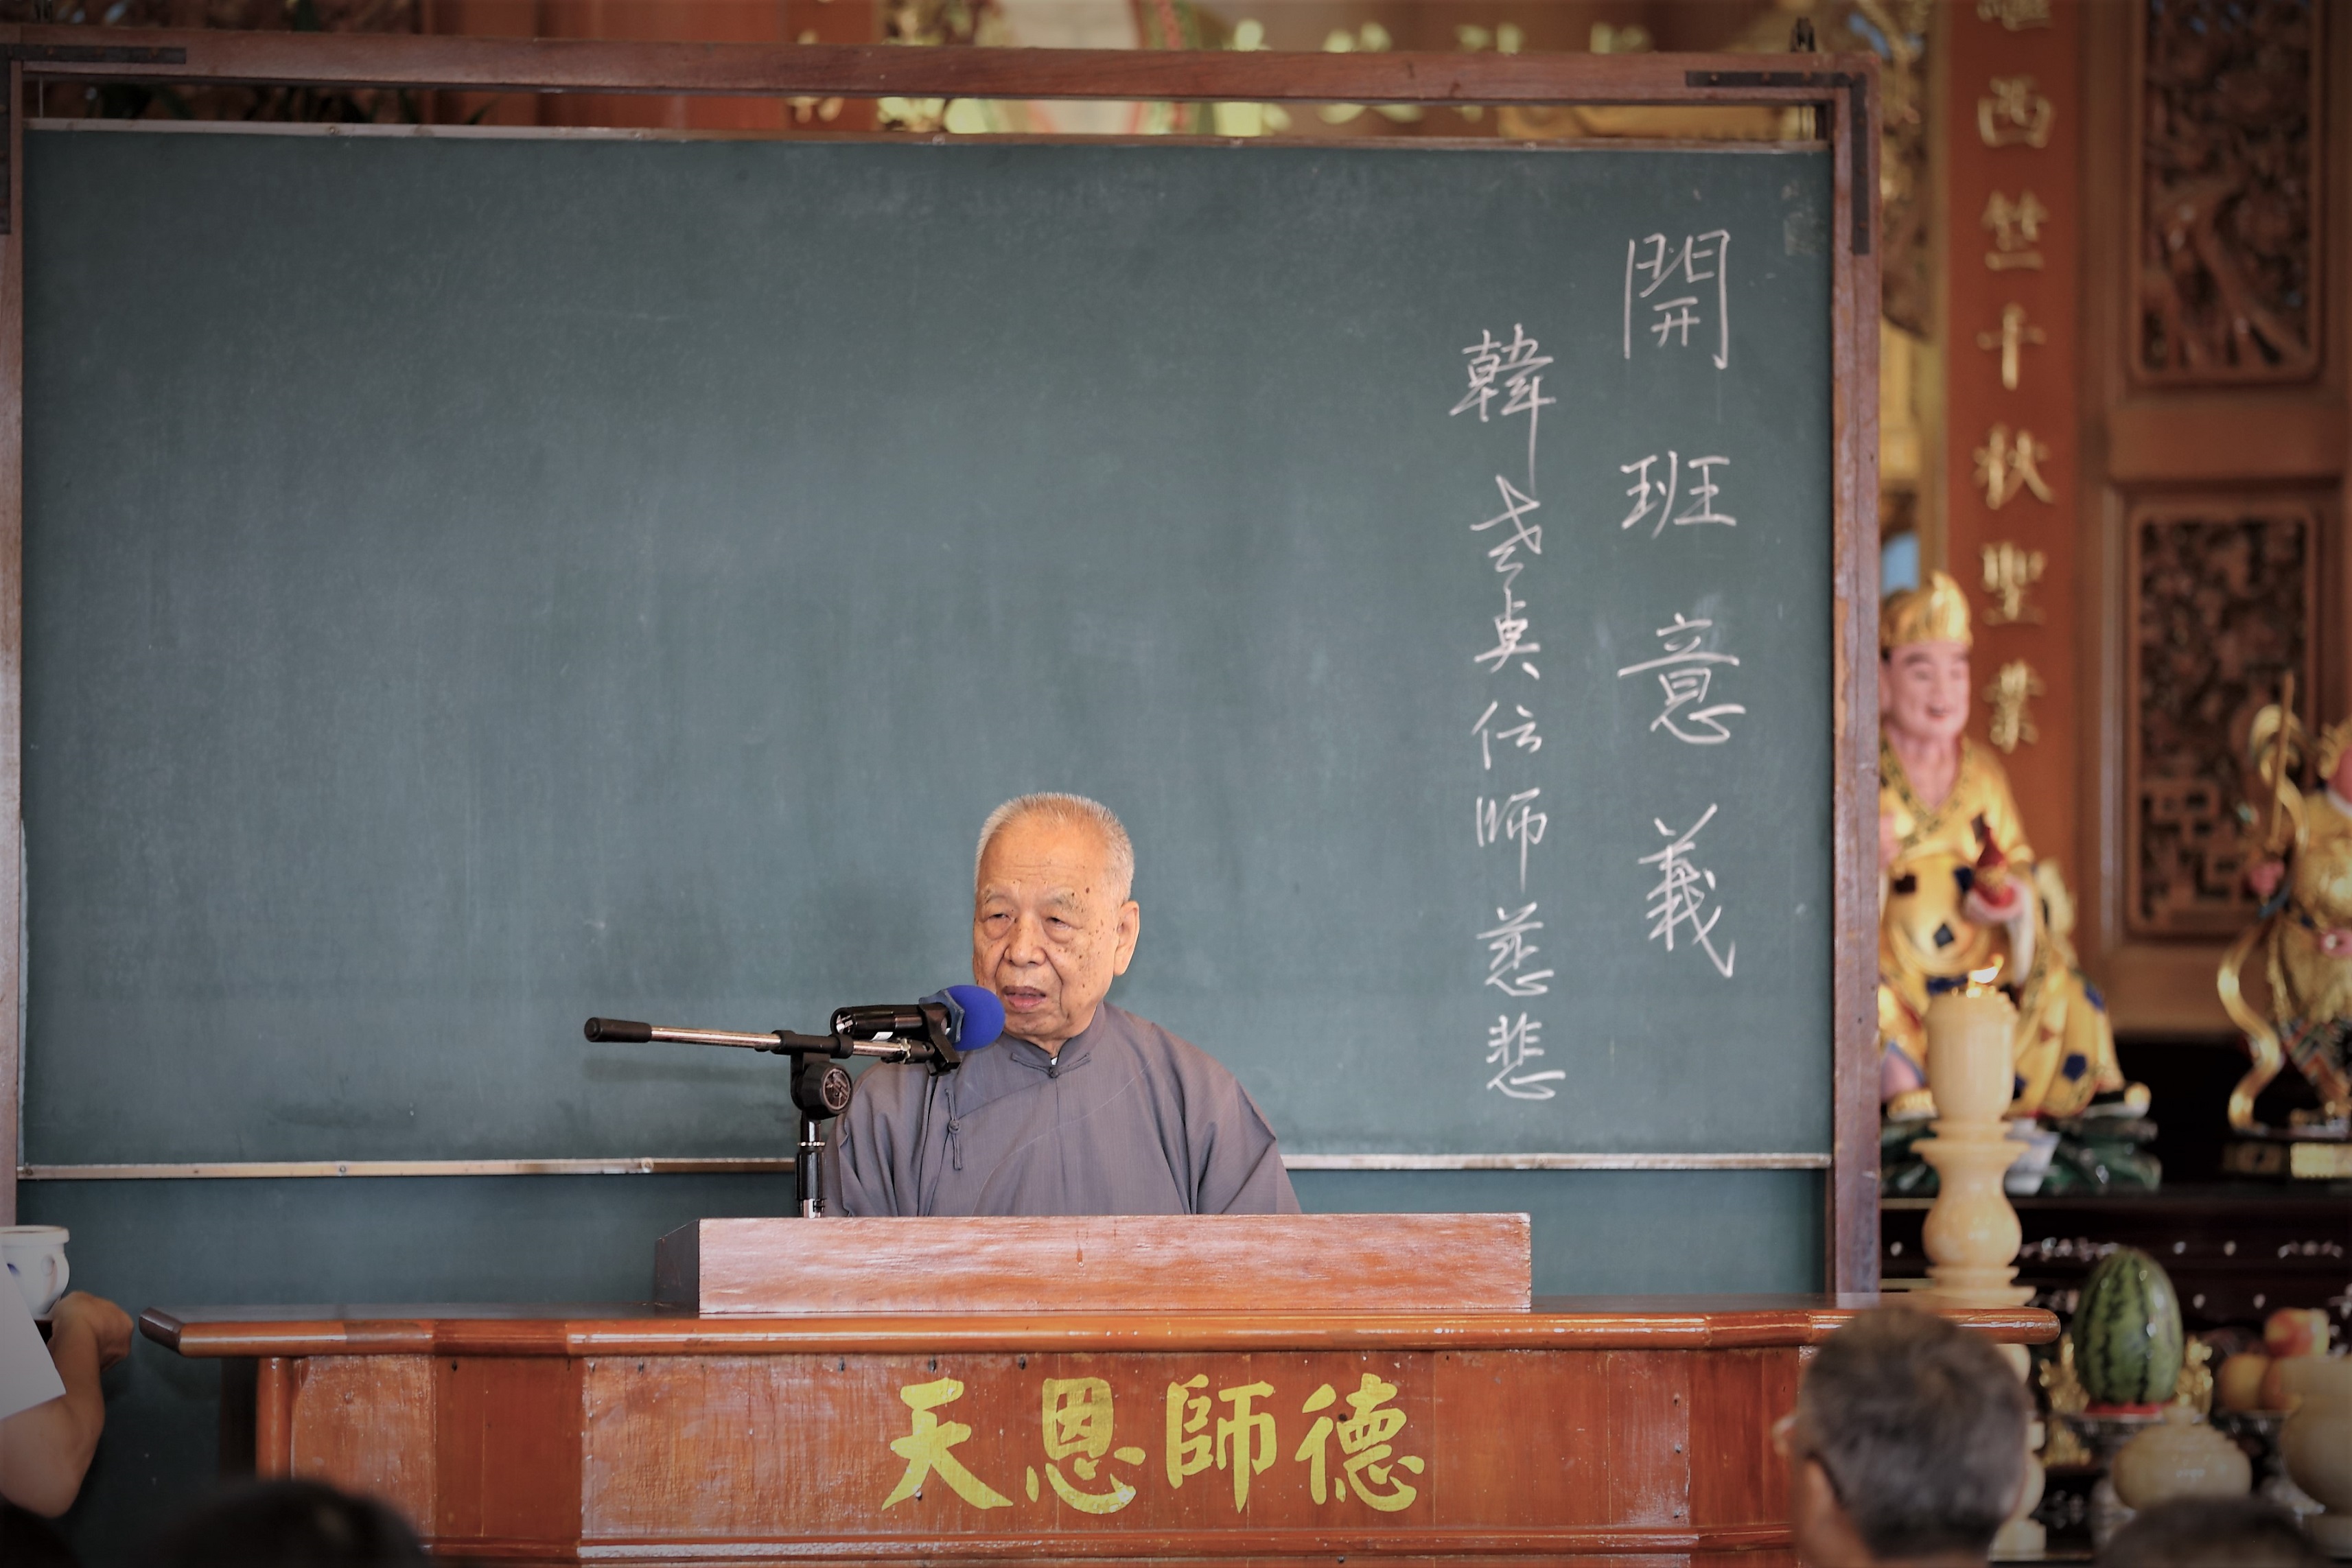 開班意義
韓老点传師慈悲
西竺千秋聖業
天恩師德